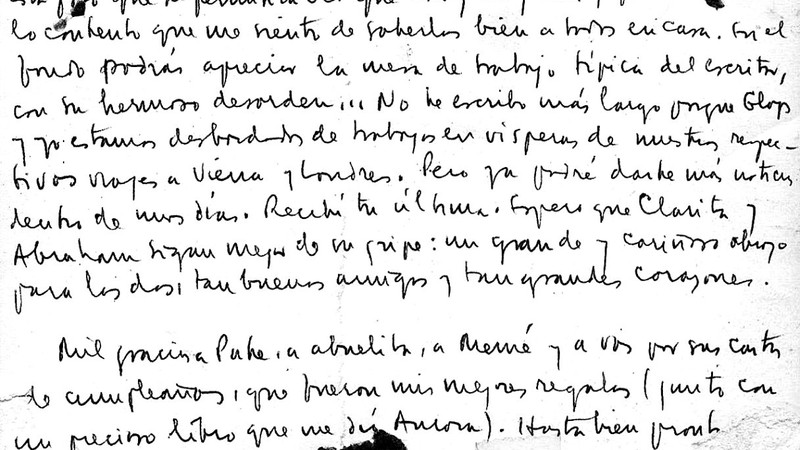 que se
lo contento que me siento de saberlas bien a todos en casa. En el
fondo podrás apreciar la mesa de trabajo típica del escritor,
con su hermoso desorden... No te escribo más largo porque Glop
y yo estamos desbordados de trabajos en vísperas de nuestros respec-
tivos viajes a Viena y Londres. Pero ya podré darte más noticias
dentro de unos días. Recibí tu última. Espero que Clarita y
Abraham sigan mejor de su gripe: un grande y cariñoso abrazo
para los dos, tan buenos amigos y tan grandes corazones.
Mil gracias a Puke, a abuelita, a Memé y a vos por sus cartas
de cumpleaños, que fueron mis mejores regalos (junto con
un precioso libro que me dió Aurora). Hasta bien pronto